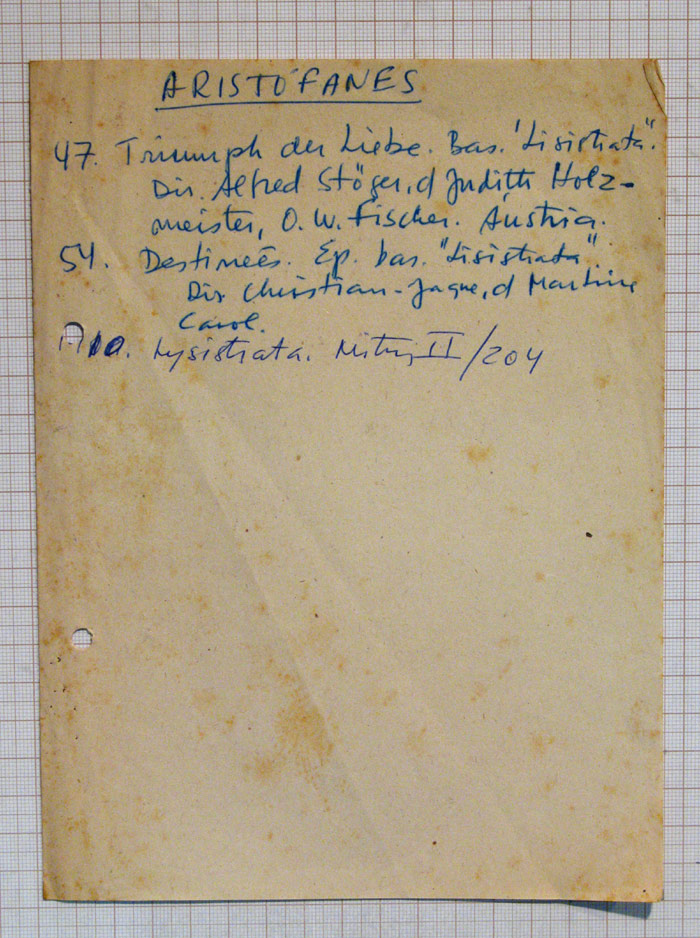 ARISTÓFANES
47. Triumph der Liebe. Bas. "Lisistrata".
Dir. Alfred Stöger, d Judith Holz-
meister, O. W. Fischer. Áustria.
54. Destineés. Ep. bas. "Lisistrata".
Dir Christian-Jaque, d Martine
Carol.
Lysistrata. Mitry II/204